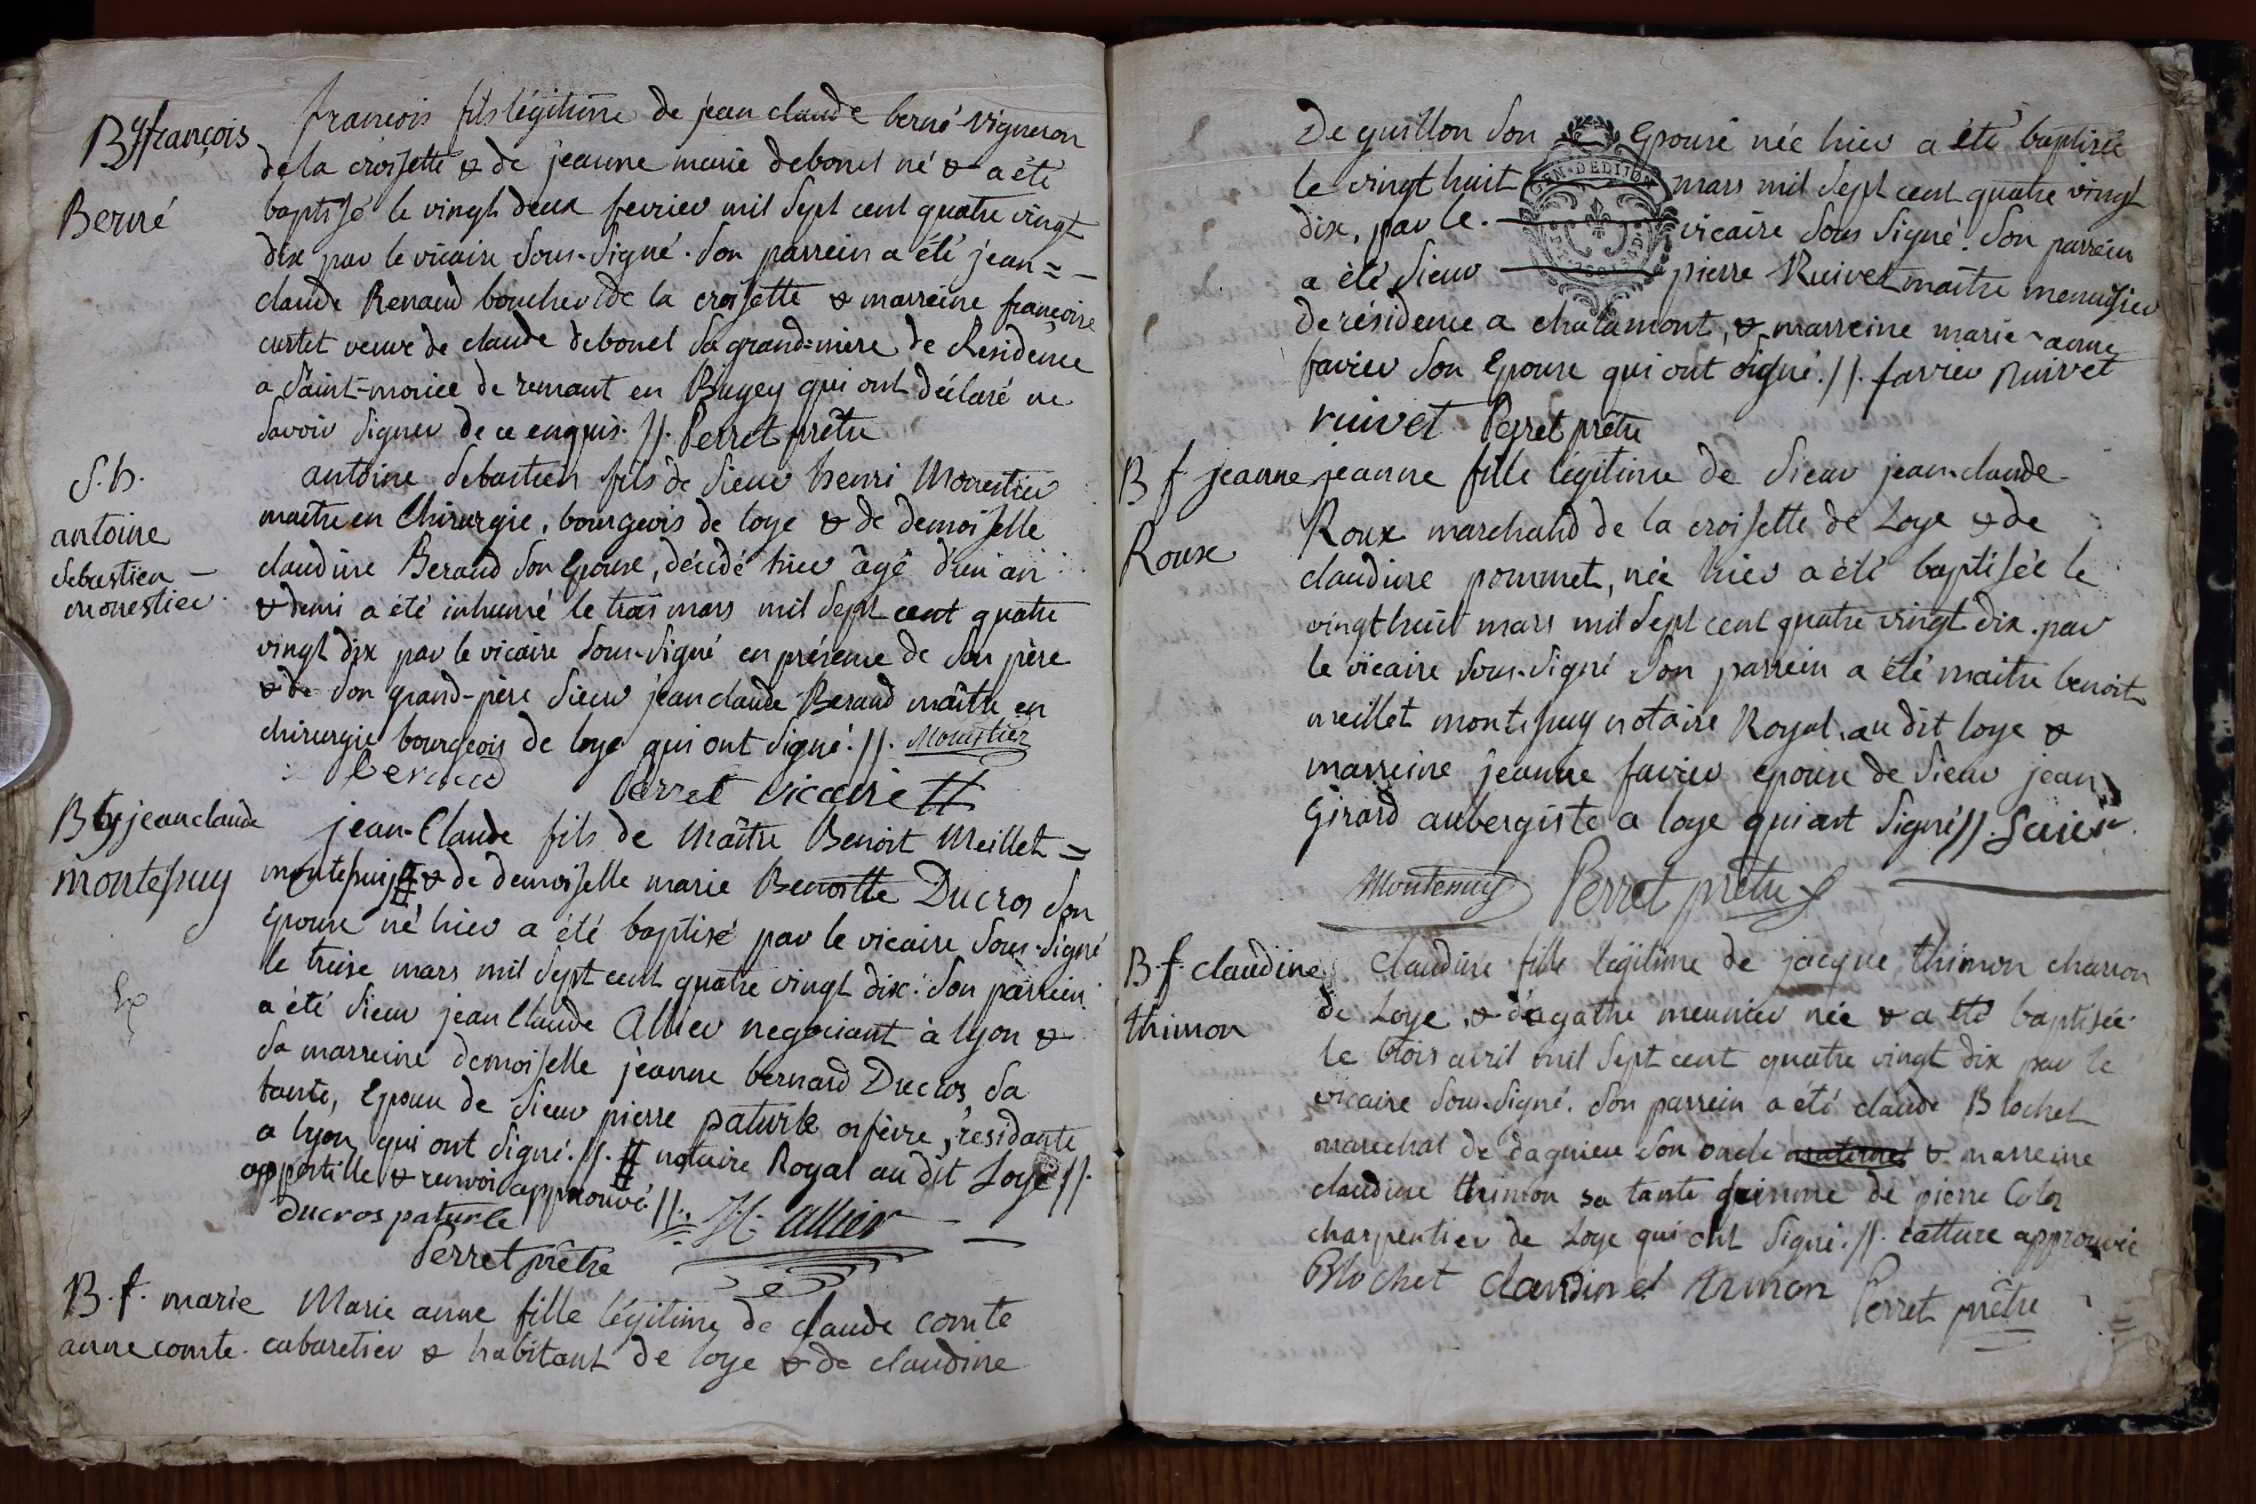 By françois
Berné
françois fils légitime de jean claude berné vigneron
de la croisette & de jeanne marie debonel né & a été
baptisé le vingt deux fevrier mil sept cent quatre vingt
dix par le vicaire sous-signé. son parrein a été jean=
claude Renaud boucher de la croisette & marreine françoise
curtet veuve de claude debonel sa grand-mère de Residence
a saint-morice de remant en Bugey qui ont déclaré ne
savoir signer de ce enquis. //. Perret prêtre
S. h.
antoine
sebastien
monestier
antoine sebastien fils de sieur henri Monestier
maitre en Chirurgie, bourgeois de loye & de demoiselle
claudine Beraud son Epouse, décédé hier âgé d'un an
& demi a été inhumé le trois mars mil sept cent quatre
vingt dix par le vicaire sous-signé en présence de son père
& de son grand-père sieur jean claude Beraud maître en
chirurgie bourgeois de loye qui ont signé. //. Monestier
beraud Perret vicaire
B jean claude
montepuy
jean-Claude fils de Maître Benoit Meillet=
montepuis # & de demoiselle marie Benoitte Ducros son
Epouse né hier a été baptisé par le vicaire sous-signé
le treise mars mil sept cent quatre vingt dix. son parrein
a été sieur jean Claude Allier negociant à lyon &
sa marreine demoiselle jeanne bernard Ducros sa
tante, Epouse de sieur pierre paturle orfèvre, résidante
a lyon qui ont signé. //. # notaire Royal au dit Loye //.
appostille & renvoi approuvé. //.
ducros paturle allier
Perret prêtre
B. f. marie
anne comte.
Marie anne fille légitime de claude comte
cabaretier & habitant de loye & de claudine
De guillon son Epouse née hier a été baptisée
le vingt huit mars mil sept cent quatre vingt
dix, par le vicaire sous signé. son parrein
a été sieur pierre Ruivet maître menuisier
de résidence a chalamont, & marreine marie-anne
favier son Epouse qui ont signé. //. favier Ruivet
ruivet Perret prêtre
GEN. DE DIJON
B f jeanne
Roux
jeanne fille légitime de sieur jean-claude
Roux marchand de la croisette de Loye & de
claudine pommet, née hier a été baptisée le
vingt huit mars mil sept cent quatre vingt dix. par
le vicaire sous-signé son parrein a été maitre benoit
meillet montepuy notaire Royal au dit loye &
marreine jeanne favier epouse de sieur jean
Girard aubergiste a loye qui ont signé //. favier
Montepuy Perret prêtre
B. f. claudine
thimon
claudine fille légitime de jacque thimon charron
de Loye, & d'agathe meunier née & a été baptisée
le trois avril mil sept cent quatre vingt dix par le
vicaire sous-signé. son parrein a été claude Blochet
marechal de dagnieu son oncle maternel & marreine
claudine thimon sa tante femme de pierre
charpentier de Loye qui ont signé. //. rature approuvée
Blochet claudine timon Perret prêtre